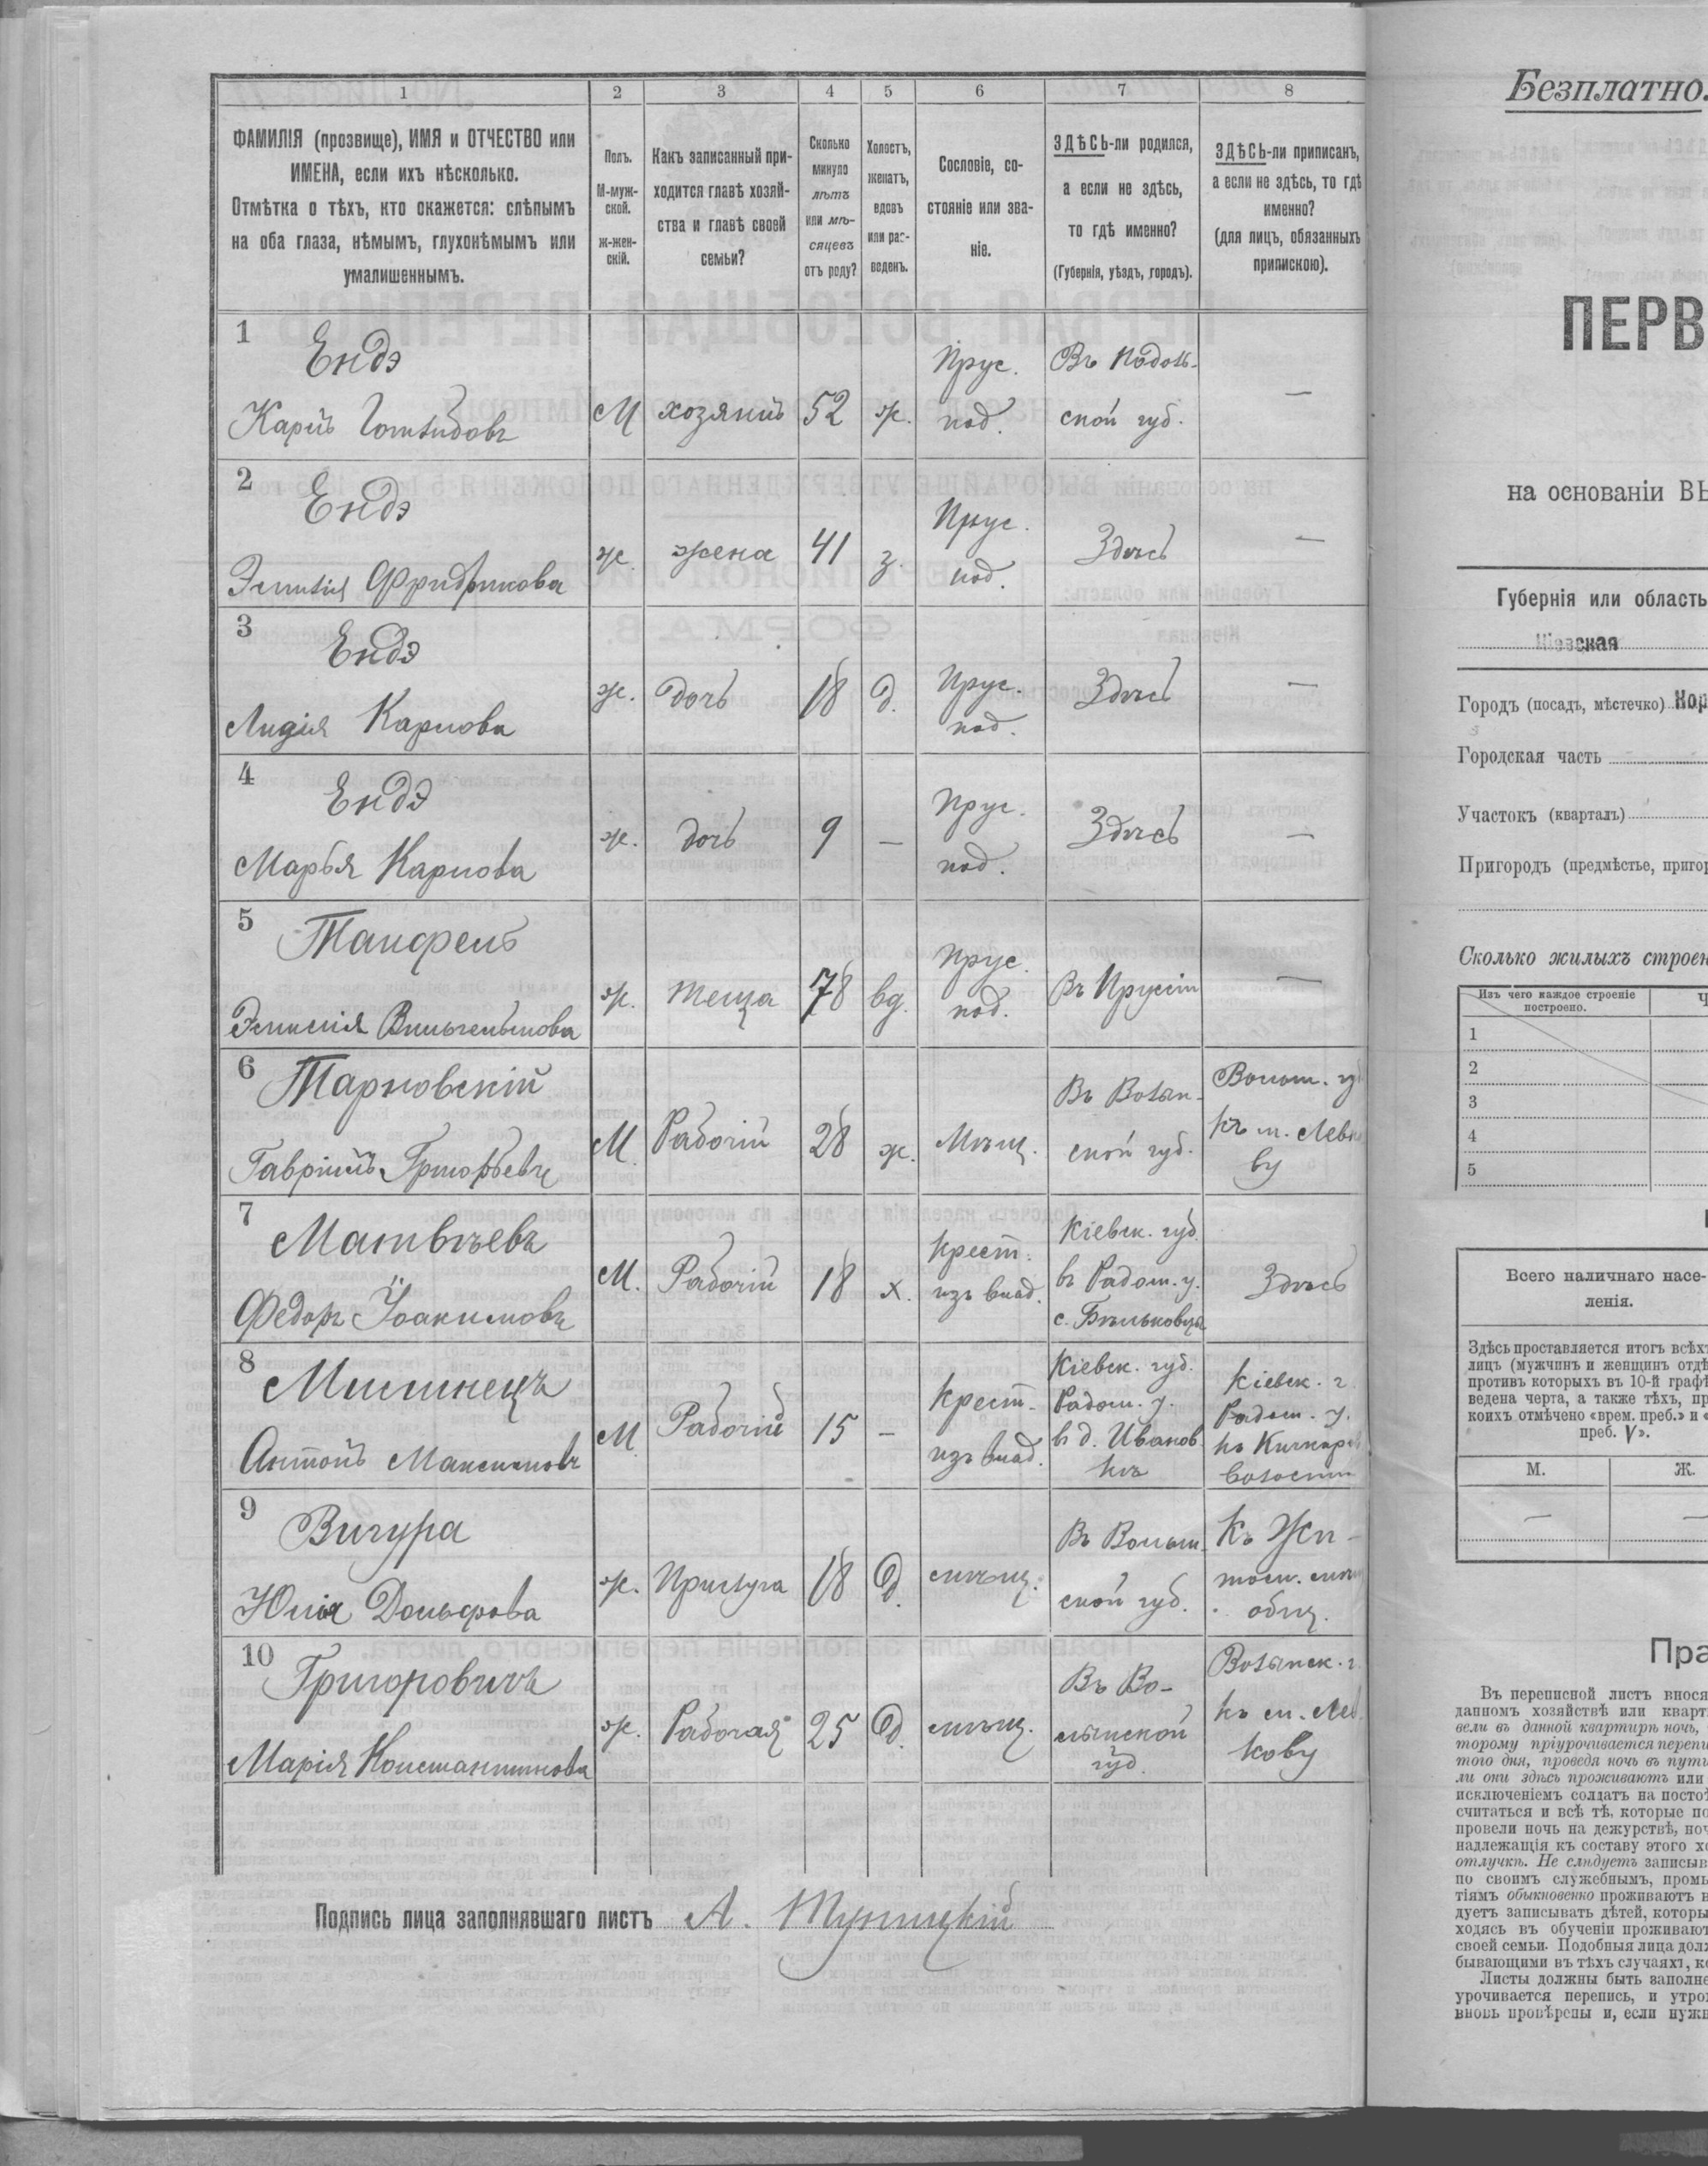 1 2 3 4 5 6 7 8
ФАМИЛІЯ (прозвище), ИМЯ и ОТЧЕСТВО или
ИМЕНА, если ихъ нѣсколько.
Отмѣтка о тѣхъ, кто окажется: слѣпымъ
на оба глаза, нѣмымъ, глухонѣмымъ или
умалишеннымъ.
Полъ.
М-муж-
ской.
ж-жен-
скій.
Какъ записанный при-
ходится главѣ хозяй-
ства и главѣ своей
семьи?
Сколько
минуло
лѣтъ
или мѣ-
сяцевъ
отъ роду?
Холостъ,
женатъ,
вдовъ
или раз-
веденъ.
Сословіе, со-
стояніе или зва-
ніе.
ЗДѢСЬ-ли родился,
а если не здѣсь,
то гдѣ именно?
(Губернія, уѣздъ, городъ).
ЗДѢСЬ-ли приписанъ,
а если не здѣсь, то гдѣ
именно?
(для лицъ, обязанныхъ
припискою).
1
Ендэ
Карлъ Готлибовъ
М
хозяинъ
52
ж.
Прус.
под.
Въ Подоль-
ской губ.
—
2
Ендэ
Эмилія Фридрикова
ж.
жена
41
з.
Прус.
под.
Здѣсь
—
3
Ендэ
Лидія Карлова
ж.
дочь
18
д.
Прус.
под.
Здѣсь
—
4
Ендэ
Марья Карлова
ж.
дочь
9
—
Прус.
под.
Здѣсь
—
5
Танфель
Эмилія Вильгельмова
ж.
теща
78
вд.
Прус.
под.
Въ Пруссіи
—
6
Тарновскій
Гавріилъ Григорьевъ
М
Рабочій
28
ж.
Мѣщ.
Въ Волын-
ской губ.
Волын. губ
къ м. Левко
ву
7
Матвѣевъ
Федоръ Іоакимовъ
М.
Рабочій
18
х.
крест.
изъ влад.
Кіевск. губ.
въ Радом. у.
с. Бѣльковцы
Здѣсь
8
Антонъ Максимовъ
М
Рабочій
15
—
Крест.
изъ влад.
Кіевск. губ.
Радом. у.
в д. Иванов
кѣ
Кіевск. г.
Радом. у.
къ
волости
9
Вигура
Юлія Дольфова
ж.
Прислуга
18
д.
мѣщ.
Въ Волын-
ской губ.
Къ Жи-
том. мѣщ
общ.
10
Григоровичъ
Марія Константинова
ж.
Рабочая
25
д.
мѣщ.
Въ Во-
лынской
губ.
Волынск. г.
къ м. Лев
кову
Подпись лица заполнявшаго листъ А. Туницкій
Безплатно.
ПЕРВ
на основаніи ВЫ
Губернія или область
Кіевская
Городъ (посадъ, мѣстечко) Кор
Городская часть
Участокъ (кварталъ)
Пригородъ (предмѣстье, пригор
Сколько жилыхъ строен
Изъ чего каждое строеніе
построено.
Ч
1
2
3
4
5
Всего наличнаго насе-
ленія.
Здѣсь проставляется итогъ всѣхъ
лицъ (мужчинъ и женщинъ отдѣ
противъ которыхъ въ 10-й графѣ
ведена черта, а также тѣхъ, пр
коихъ отмѣчено «врем. преб.» и «
преб. V».
М. Ж.
— —
Пра
Въ переписной листъ внося
данномъ хозяйствѣ или кварт
вели въ данной квартирѣ ночь,
торому пріурочивается перепи
того дня, проведя ночь въ пути
ли они здѣсь проживаютъ или
исключеніемъ солдатъ на посто
считаться и всѣ тѣ, которые по
провели ночь на дежурствѣ, ноч
надлежащія къ составу этого хо
отлучкѣ. Не слѣдуетъ записыв
по своимъ служебнымъ, промы
тіямъ обыкновенно проживаютъ в
дуетъ записывать дѣтей, которы
ходясь въ обученіи проживают
своей семьи. Подобныя лица долж
бывающими въ тѣхъ случаяхъ, ко
Листы должны быть заполне
урочивается перепись, и утро
вновь провѣрены и, если нужн